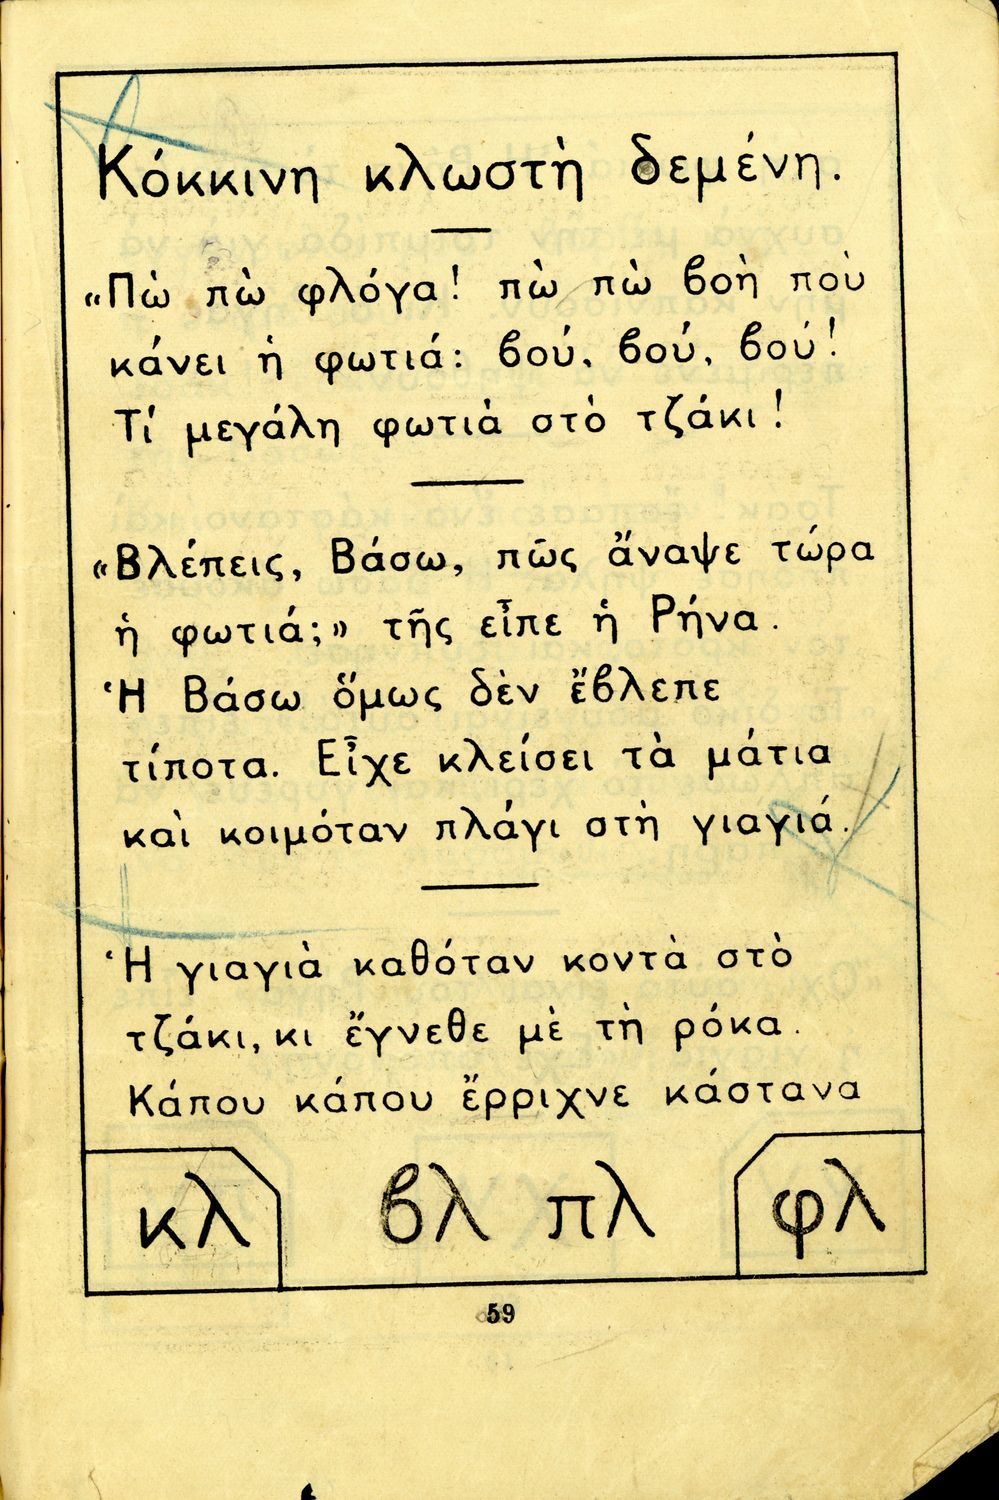 Κόκκινη κλωστὴ δεμένη.
«Πὼ πὼ φλόγα! πὼ πὼ βοὴ ποὺ
κάνει ἡ φωτιά: βού, βού, βού!
Τί μεγάλη φωτιὰ στὸ τζάκι!
«Βλέπεις, Βάσω, πῶς ἄναψε τώρα
ἡ φωτιά;» τῆς εἶπε ἡ Ρήνα.
Ἡ Βάσω ὅμως δὲν ἔβλεπε
τίποτα. Εἶχε κλείσει τὰ μάτια
καὶ κοιμόταν πλάγι στὴ γιαγιά.
Ἡ γιαγιὰ καθόταν κοντὰ στὸ
τζάκι, κι ἔγνεθε μὲ τὴ ρόκα.
Κάπου κάπου ἔρριχνε κάστανα
κλ βλ πλ φλ
59